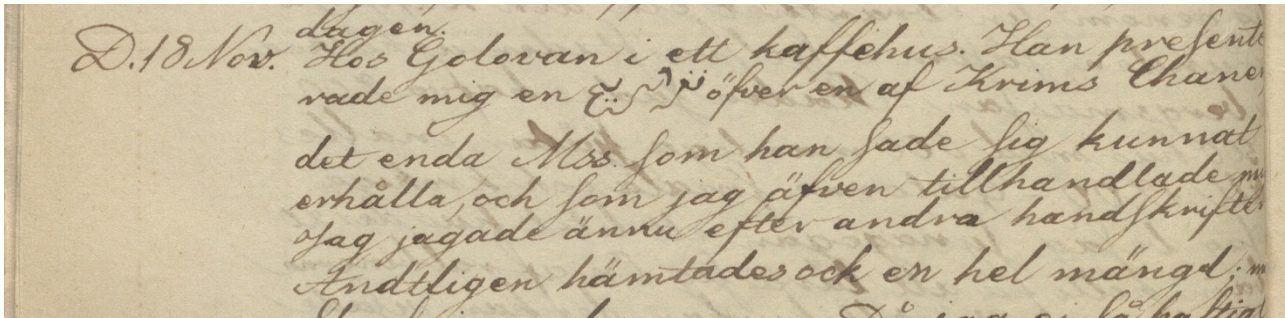 dagen.
D. 18 Nov. Hos Golovan i ett kaffehus. Han presente
rade mig en تاريخ öfver en af Krims Chaner,
det enda Mss. som han sade sig kunnat
erhålla, och som jag äfven tillhandlade mig
Jag jagade ännu efter andra handskrifter
Andtligen hämtades ock en hel mängd; m
Då jag ej så hastigt